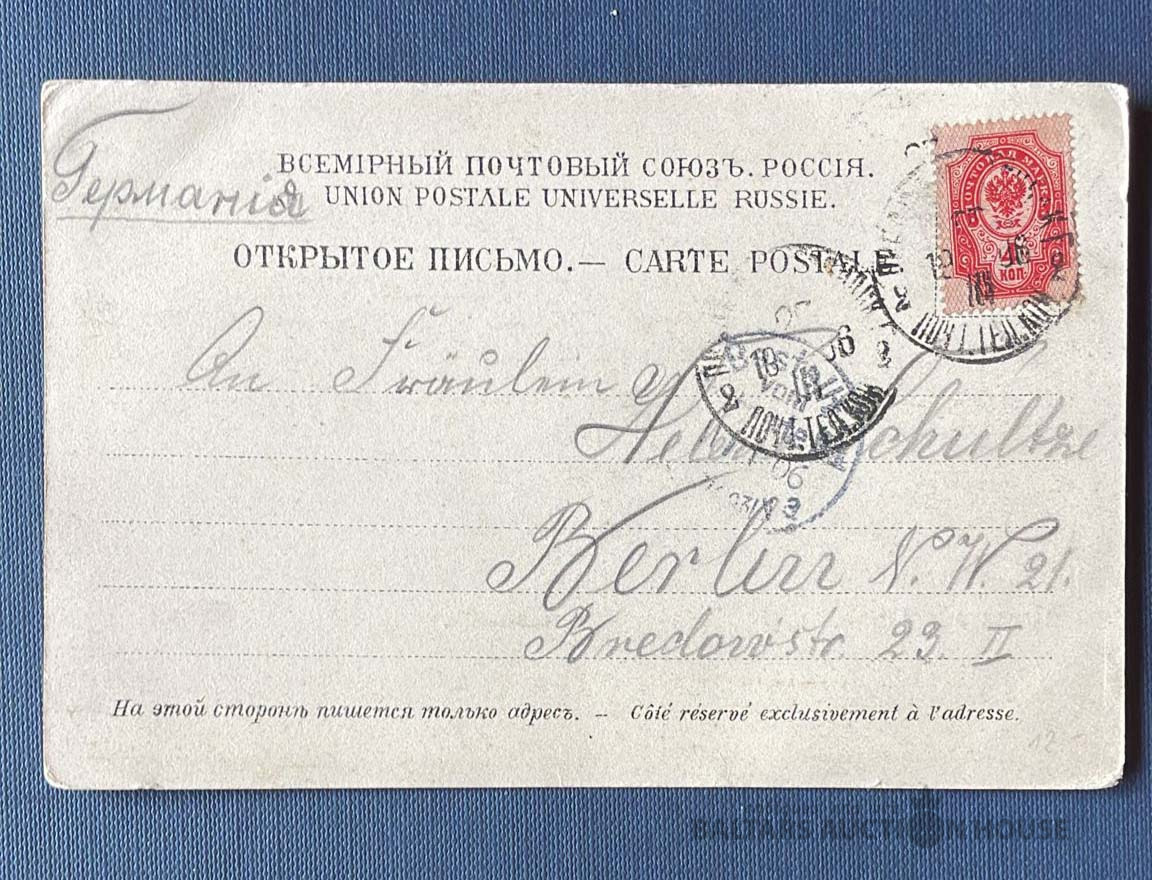 Германія
ВСЕМІРНЫЙ ПОЧТОВЫЙ СОЮЗЪ. РОССІЯ.
UNION POSTALE UNIVERSELLE RUSSIE.
ОТКРЫТОЕ ПИСЬМО.— CARTE POSTALE
ПОЧТОВАЯ МАРКА
КОП.
ПОЧТ.ТЕЛ.КОН
06
ПОЧТ.ТЕЛ.КОН
06
An Fräulein
Schultze
Berlin N.W. 21.
Bredowstr. 23. II
На этой сторонѣ пишется только адресъ. — Côté réservé exclusivement à l'adresse.
12-
BALTARS AUCTION HOUSE